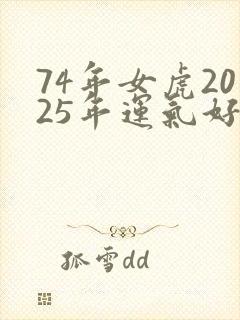 74年女虎20
25年運氣好
孤雪dd